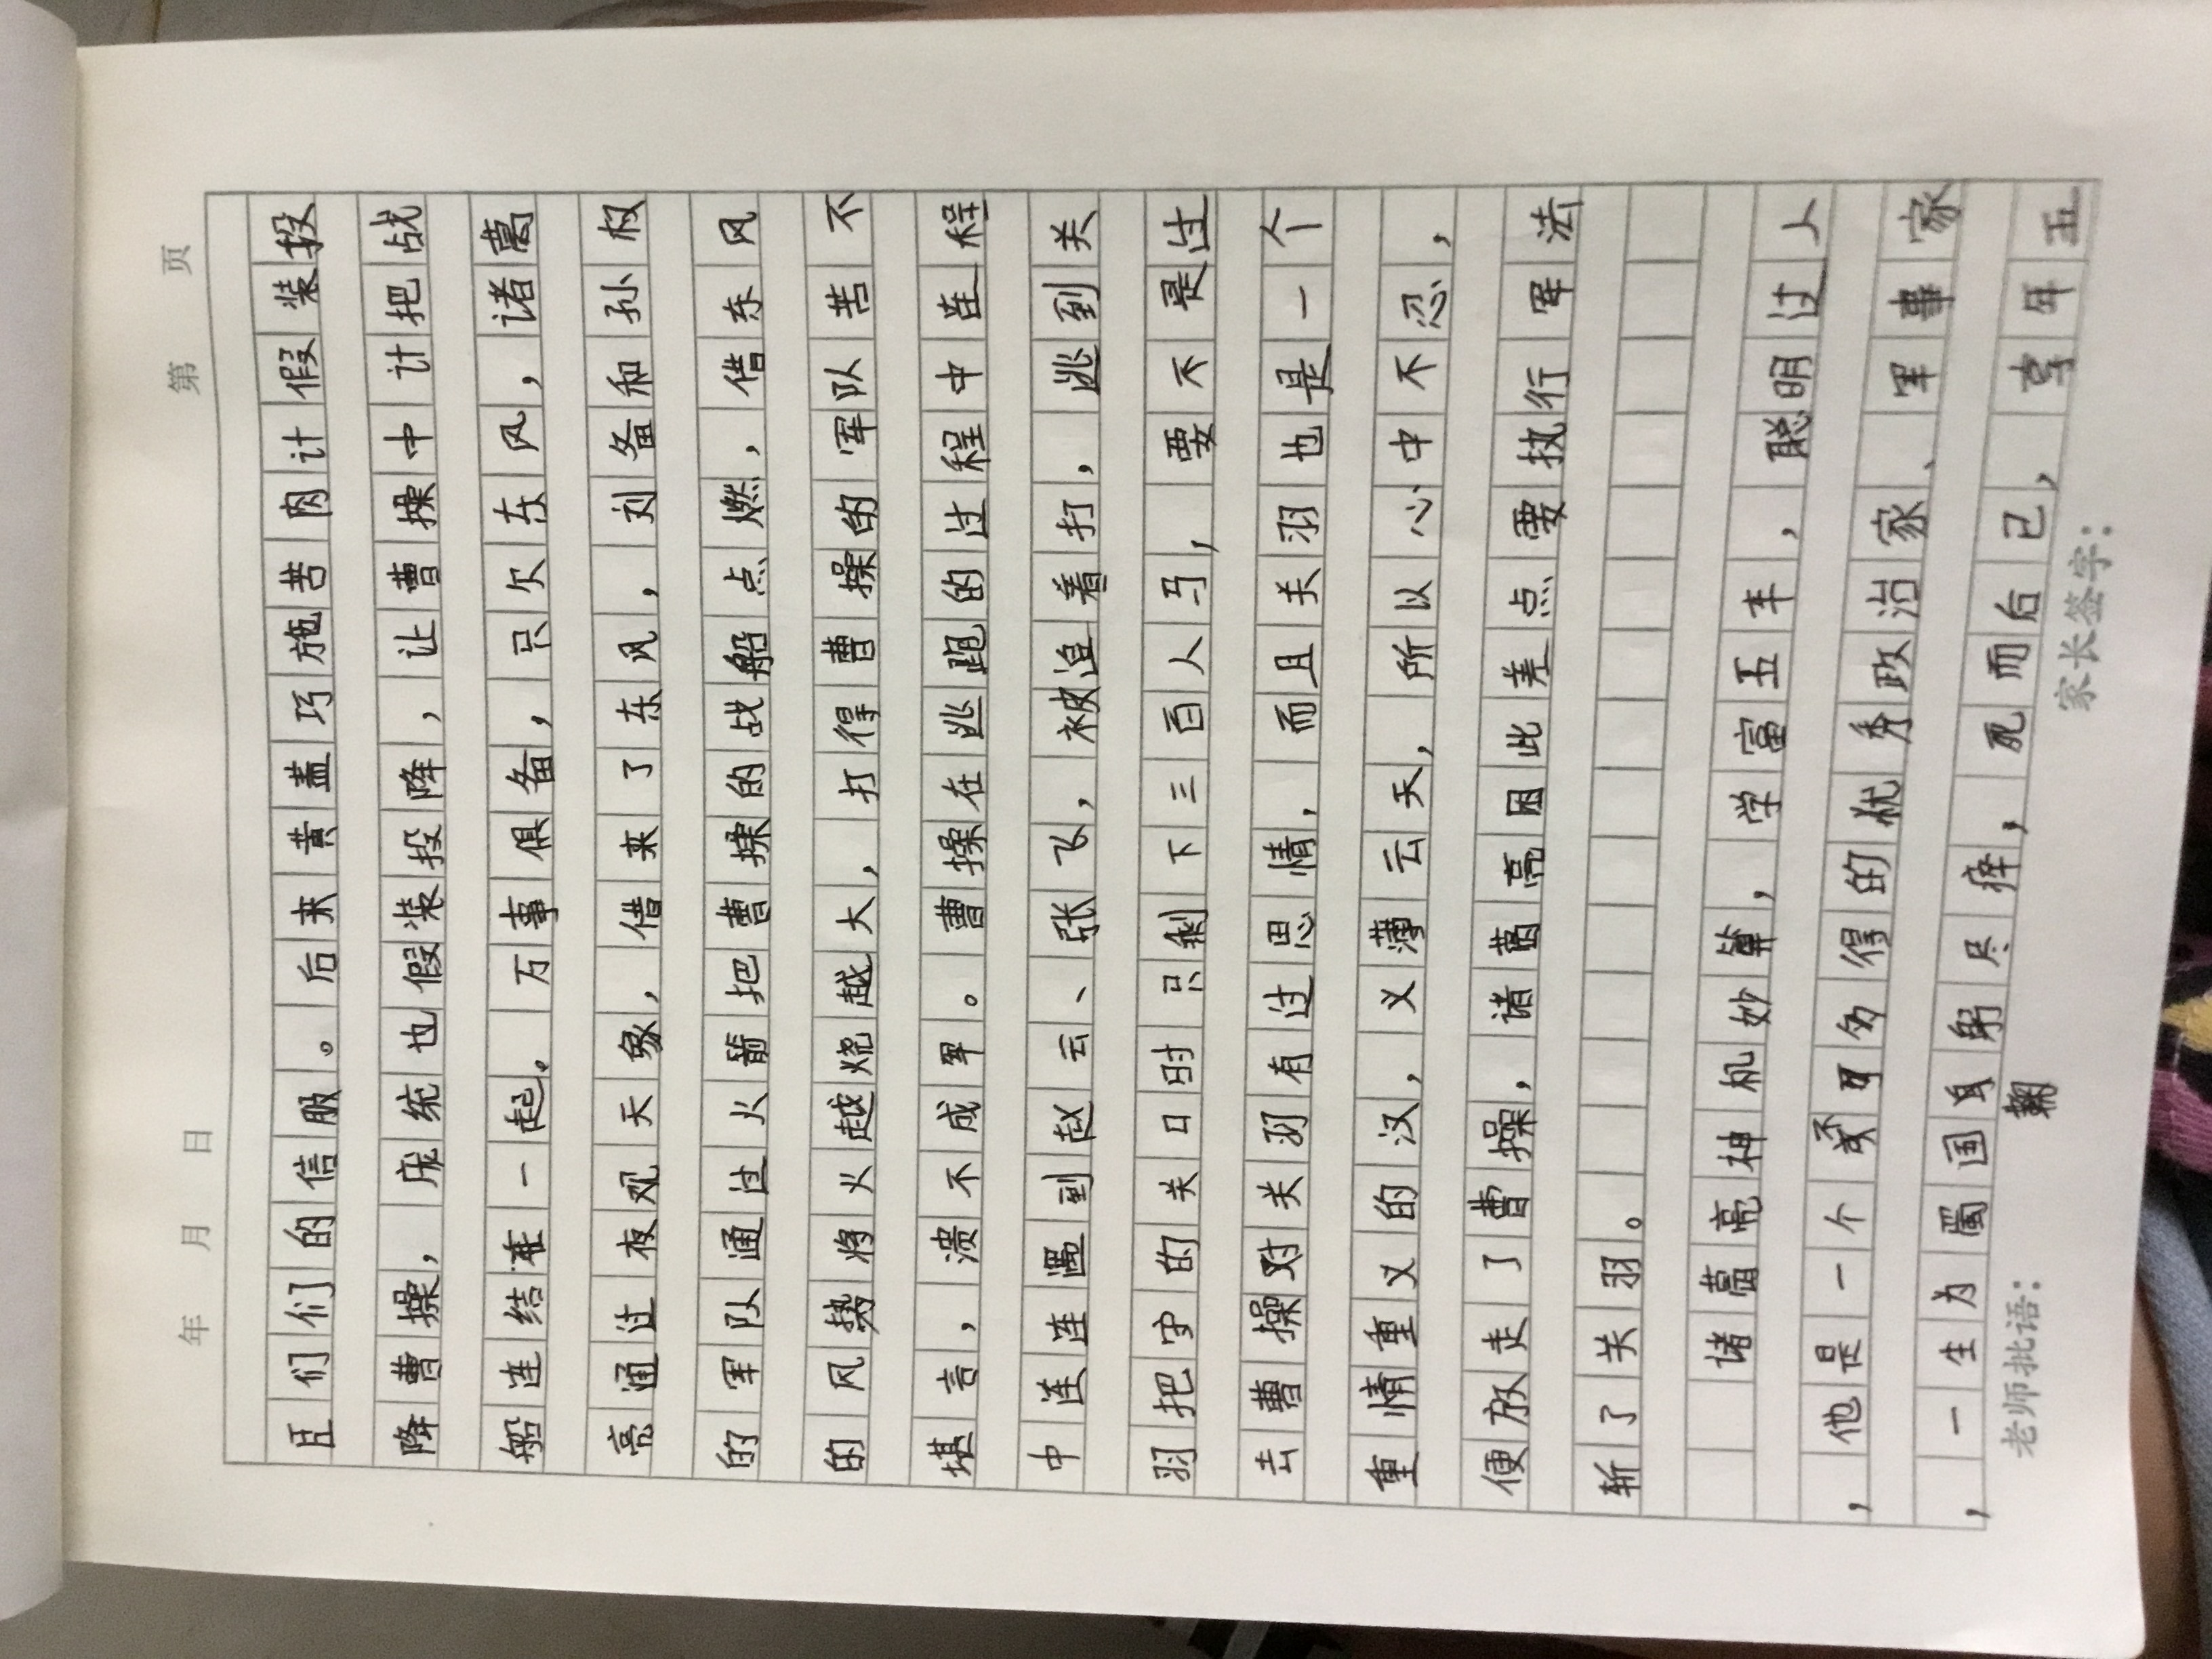 年 月 日 第 页
臣们们的信服。后来黄盖巧施苦肉计假装投
降曹操，庞统也假装投降，让曹操中计把战
船连结在一起。万事俱备，只欠东风，诸葛
亮通过夜观天象，借来了东风，刘备和孙权
的军队通过火箭把曹操的战船点燃，借东风
的风势将火越烧越大，打得曹操的军队苦不
堪言，溃不成军。曹操在逃跑的过程中连程
中连连遇到赵云、张飞，被追着打，逃到关
羽把守的关口时只剩下三百人马，要不是过
去曹操对关羽有过恩情，而且关羽也是一个
重情重义的汉，义薄云天，所以心中不忍，
便放走了曹操，诸葛亮因此差点要执行军法
斩了关羽。
诸葛亮神机妙算，学富五车，聪明过人
，他是一个不可多得的优秀政治家、军事家
，一生为蜀国鞠躬尽瘁，死而后已，享年五
老师批语： 家长签字：